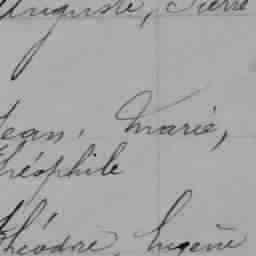 Auguste, Pierre
Jean, Marie,
Théophile
Théodore, Eugène